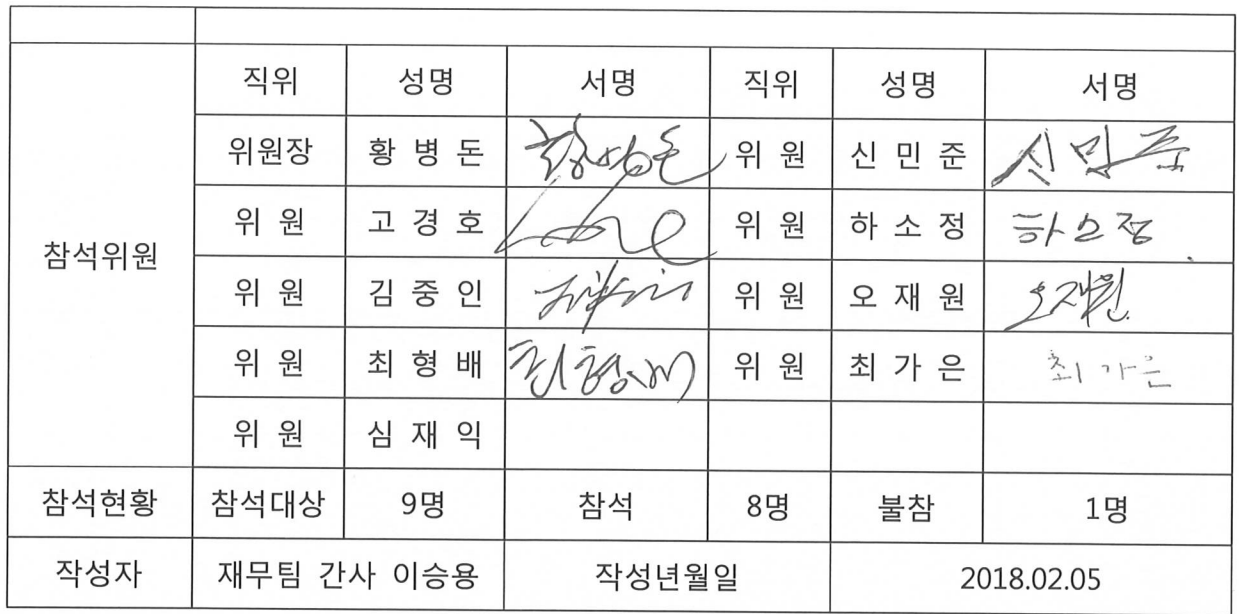 직위 성명 서명 직위 성명 서명
위원장 황 병 돈 황병돈 위 원 신 민 준 신민준
위 원 고 경 호 위 원 하 소 정 하소정
참석위원
위 원 김 중 인 위 원 오 재 원 오재원
위 원 최 형 배 최형배 위 원 최 가 은 최가은
위 원 심 재 익
참석현황 참석대상 9명 참석 8명 불참 1명
작성자 재무팀 간사 이승용 작성년월일 2018.02.05